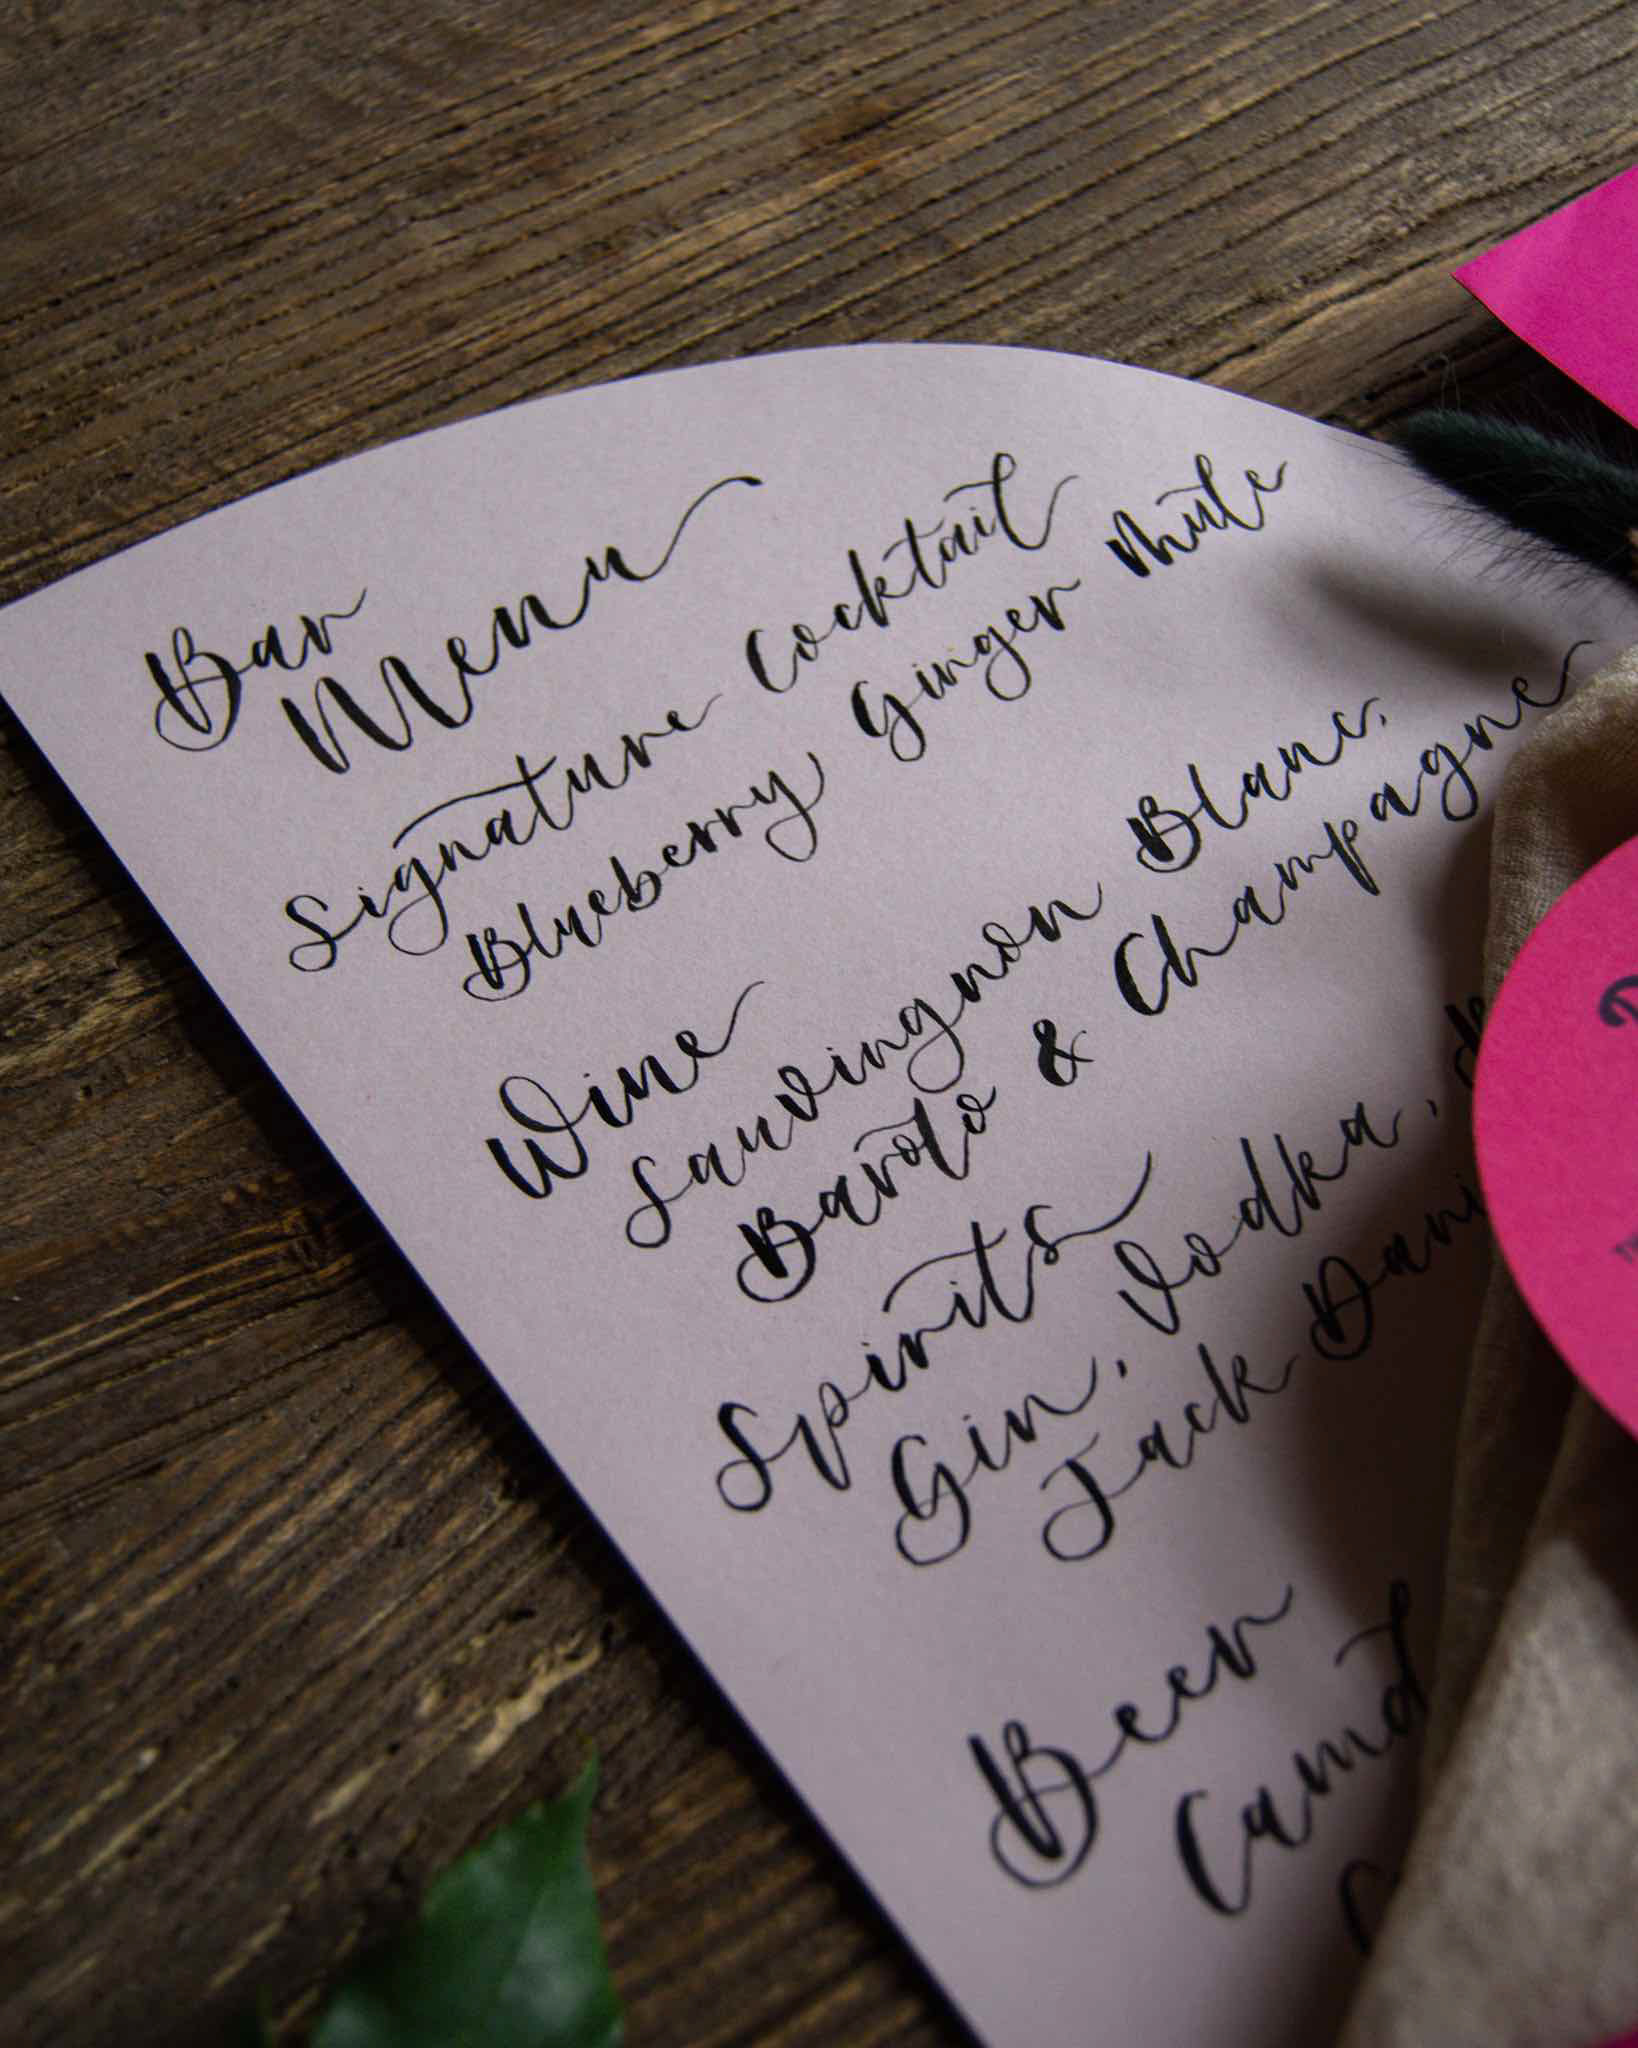 Bar
Menu
Signature Cocktail
Blueberry Ginger Mule
Wine
Sauvingnon Blanc,
Barolo & Champagne
Spirits
Gin, Vodka,
Jack Dani
Beer